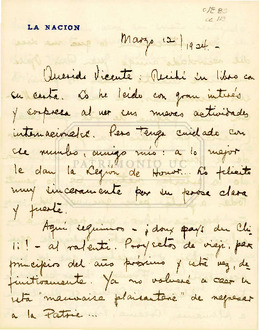 LA NACION
Marzo 12/1924.-
Querido Vicente: Recibí su libro con
su carta. Lo he leído con gran interés
y sorpresa al ver sus nuevas actividades
internacionales. Pero tenga cuidado con
ese mundo, amigo mío: a lo mejor
le dan la Legion de Honor... Lo felicito
muy sinceramente por su prosa clara
y fuerte.
Aquí seguimos - ¡doux pays du Chi
li! - al ralenti. Proyectos de viaje, para
principios del año próximo y esta vez, de-
finitivamente. Ya no volveré a caer en
esta "mauvaise plaisanterie" de regresar
a la Patria...
PATRIMONIO UC